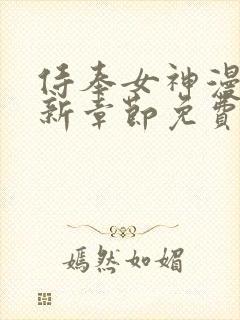 侍奉女神漫
新章節免費
嫣然如媚